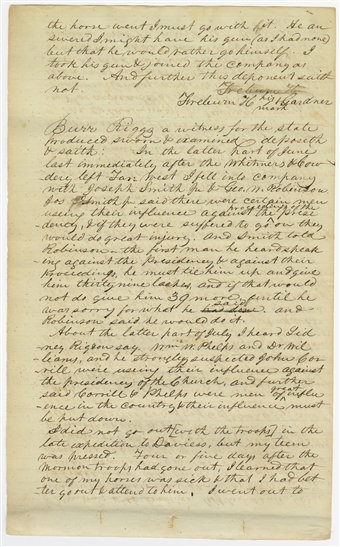 the horse went I must go with it. He an
swered I might have his gun (as I had none)
but that he would rather go himself. I
took his gun & joined the company as
above. And further this deponent saith
not.
his
Freeburn H Gardner
mark
Burr Riggs a witness for the state
produced sworn & examined deposeth
& saith: In the latter part of June
last immediately after the Whitmers & Cow
dery left Far West I fell into company
with Joseph Smith Jr. & Geo. W. Robinson
Jos Smith Jr. said there were certain men
using their influence against the proceedings of the presi
dency, & if they were suffered to go on they
would do great injury. And Smith told
Robinson the first man he heard speak
ing against the Presidency & against their
proceedings, he must tie him up and give
them thirty nine lashes, and if that would
not do give him 39 more, until he
was sorry for what he had said. and
Robinson said he would do it.
About the latter part of July, I heard Sid
ney Rigdon say Wm W. Phelps and Dr. Wil
liams, and he strongly suspected John Cor
rill were using their influence against
the presidency of the Church, and further
said Corrill & Phelps were men of great influ
ence in the country & their influence must
be put down.
I did not go out [with the troops] in the
late expedition to Daviess, but my team
was pressed. Four or five days after the
Mormon troops had gone out, I learned that
one of my horses was sick & that I had bet
ter go out & attend to him. I went out to